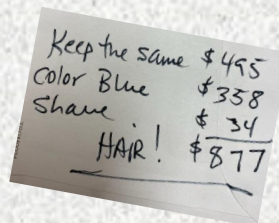 Keep the same $495
Color Blue $358
Shave $ 34
HAIR! $877